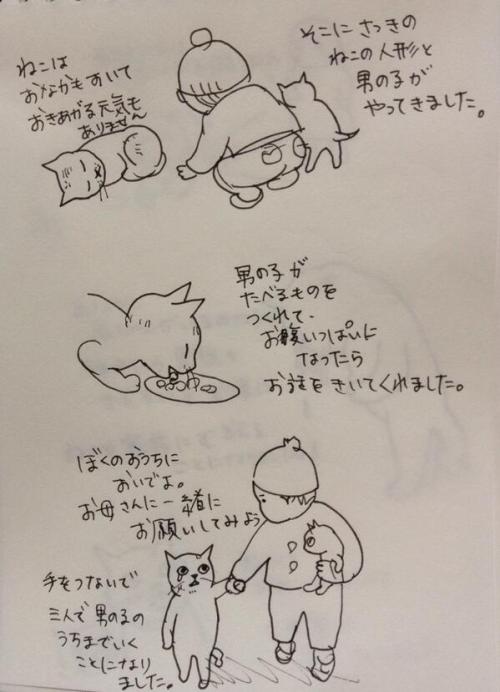 ねこは
おなかもすいて
おきあがる元気も
ありません
そこに さっきの
ねこの人形と
男の子が
やってきました。
男の子が
たべるものを
つくれて、
お腹いっぱいに
なったら
お話を きいてくれました。
ぼくのおうちに
おいでよ。
お母さんに一緒に
お願いしてみよう
手をつないで
三人で 男の子の
うちまでいく
ことになり
ました。